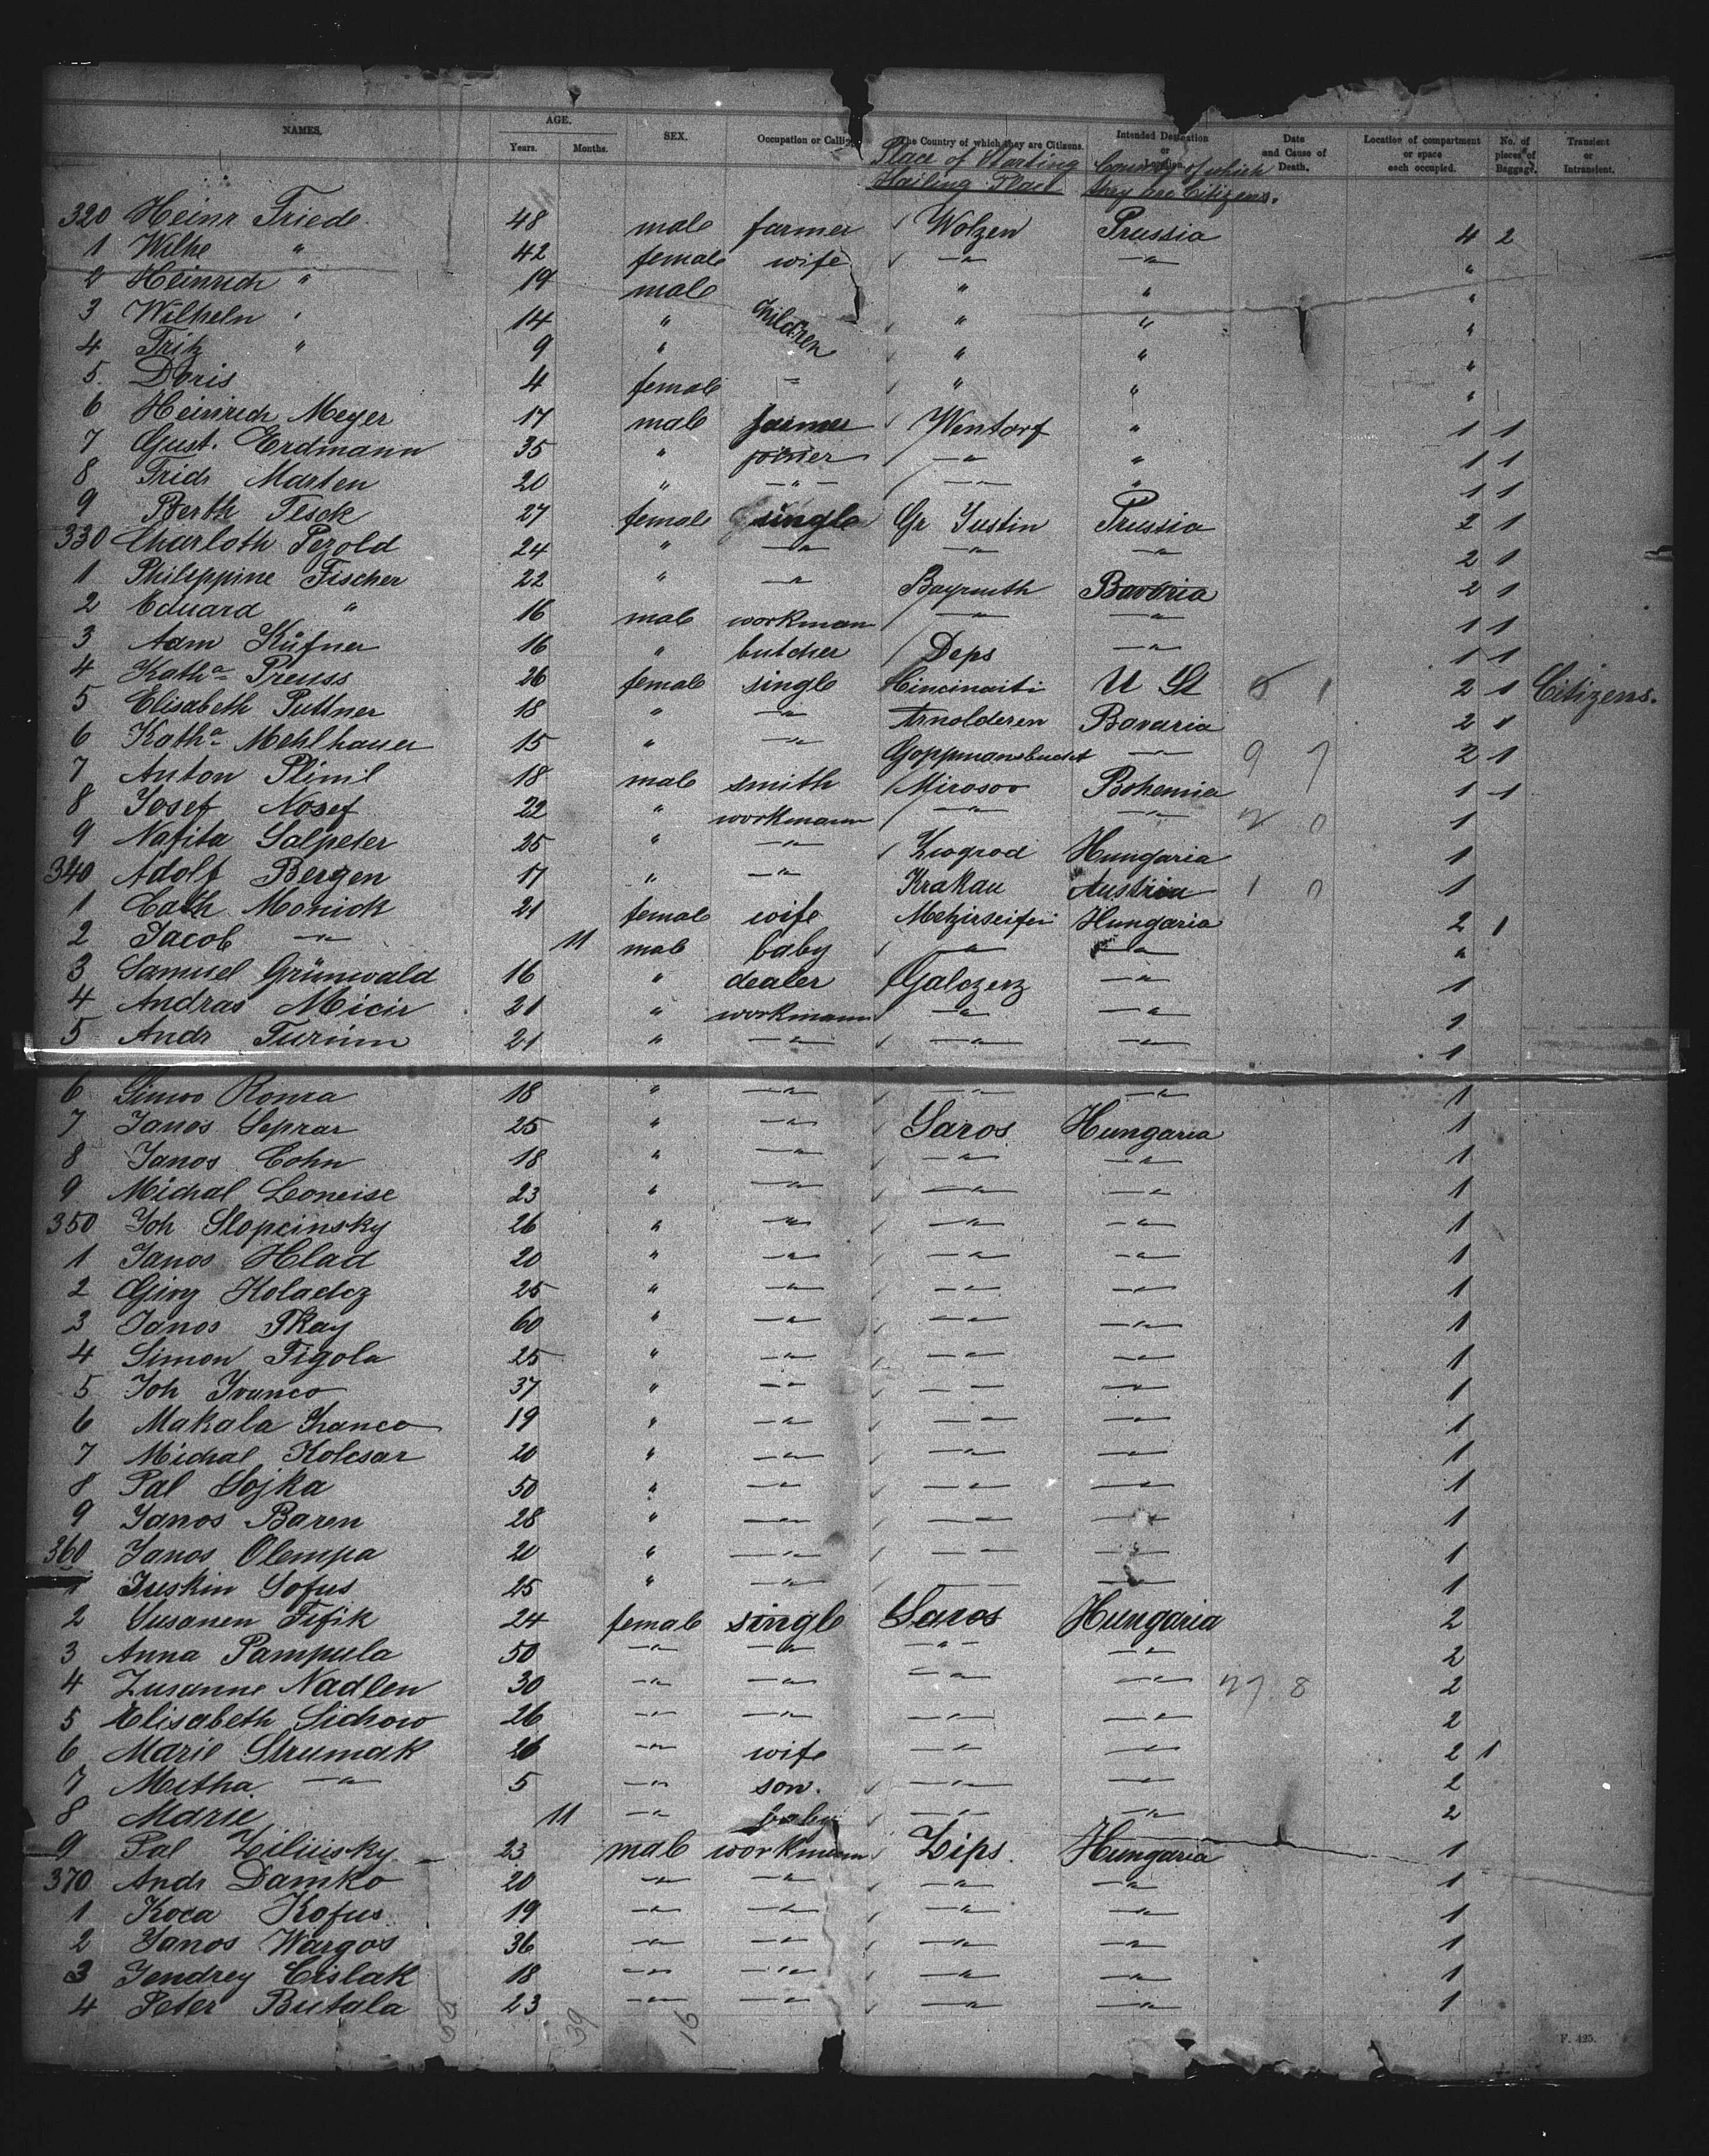 NAMES. AGE. Years. Months. SEX. Occupation or Calling The Country of which they are Citizens. Intended Destination or Location. Date and Cause of Death. Location of compartment or space each occupied. No. of pieces of Baggage. Transient or Intransient.
Place of Starting Hailing Place Country of which they are Citizens.
320 Heinr Friede 48 male farmer Wolzen Prussia 4 2
1 Wilhe " 42 female wife " " "
2 Heinrich " 19 male " " "
3 Wilheln " 14 " Children " " "
4 Fritz " 9 " " " "
5. Doris 4 female " " " "
6 Heinrich Meyer 17 male farmer Wentorf " 1 1
7 Gust. Erdmann 35 " joiner " " 1 1
8 Fridr Marten 20 " " " " 1 1
9 Berth Tesck 27 female single Gr Justin Prussia 2 1
330 Charloth Pezold 24 " " " " 2 1
1 Philippine Fischer 22 " " Bayreuth Bavaria 2 1
2 Eduard " 16 male workman " " 1 1
3 Adm Küfner 16 " butcher Deps " 1 1
4 Katha Preuss 26 female single Cincinaiti U St 1 2 1 Citizens.
5 Elisabeth Puttner 18 " " Arnolderen Bavaria 2 1
6 Katha Mehlhauer 15 " " Goppmansbucht " 9 7 2 1
7 Anton Plimil 18 male smith Mirosov Bohemia 1 1
8 Josef Nosef 22 " workmann " " 0 1
9 Nafita Salpeter 25 " " Zwogrod Hungaria 1
340 Adolf Bergen 17 " " Krakau Austria 1 0 1
1 Cath Monick 21 female wife Metzirseifen Hungaria 2 1
2 Jacob " 11 male baby " " "
3 Samuel Grünwald 16 " dealer Galczerz " 1
4 Andras Micir 21 " workmann " " 1
5 Andr Turinn 21 " " " " 1
6 Simo Roma 18 " " " " 1
7 Janos Seprar 25 " " Saros Hungaria 1
8 Janos Cohn 18 " " " " 1
9 Michal Loneise 23 " " " " 1
350 Joh Slopcinsky 26 " " " " 1
1 Janos Hlad 20 " " " " 1
2 Girz Holadcz 25 " " " " 1
3 Janos Pkay 60 " " " " 1
4 Simon Figola 25 " " " " 1
5 Joh Ivanco 37 " " " " 1
6 Makala Ivanco 19 " " " " 1
7 Michal Kolcsar 20 " " " " 1
8 Pal Sojka 50 " " " " 1
9 Janos Baren 28 " " " " 1
360 Janos Olempa 20 " " " " 1
1 Juskin Sofus 25 " " " " 1
2 Susanen Fifik 24 female single Saros Hungaria 2
3 Anna Pampula 50 " " " " 2
4 Zusanne Nadlen 30 " " " " 27 8 2
5 Elisabeth Sichow 26 " " " " 2
6 Marie Strumak 26 " wife " " 2 1
7 Metha " 5 " son. " " 2
8 Marie 11 " baby " " 2
9 Pal Ziliusky 23 male workmann Zips. Hungaria 1
370 Andr Damko 20 " " " " 1
1 Koca Kofus 19 " " " " 1
2 Janos Wargos 36 " " " " 1
3 Jendrey Cislak 18 " " " " 1
4 Peter Butala 23 " " " " 1
39 16
F. 425.